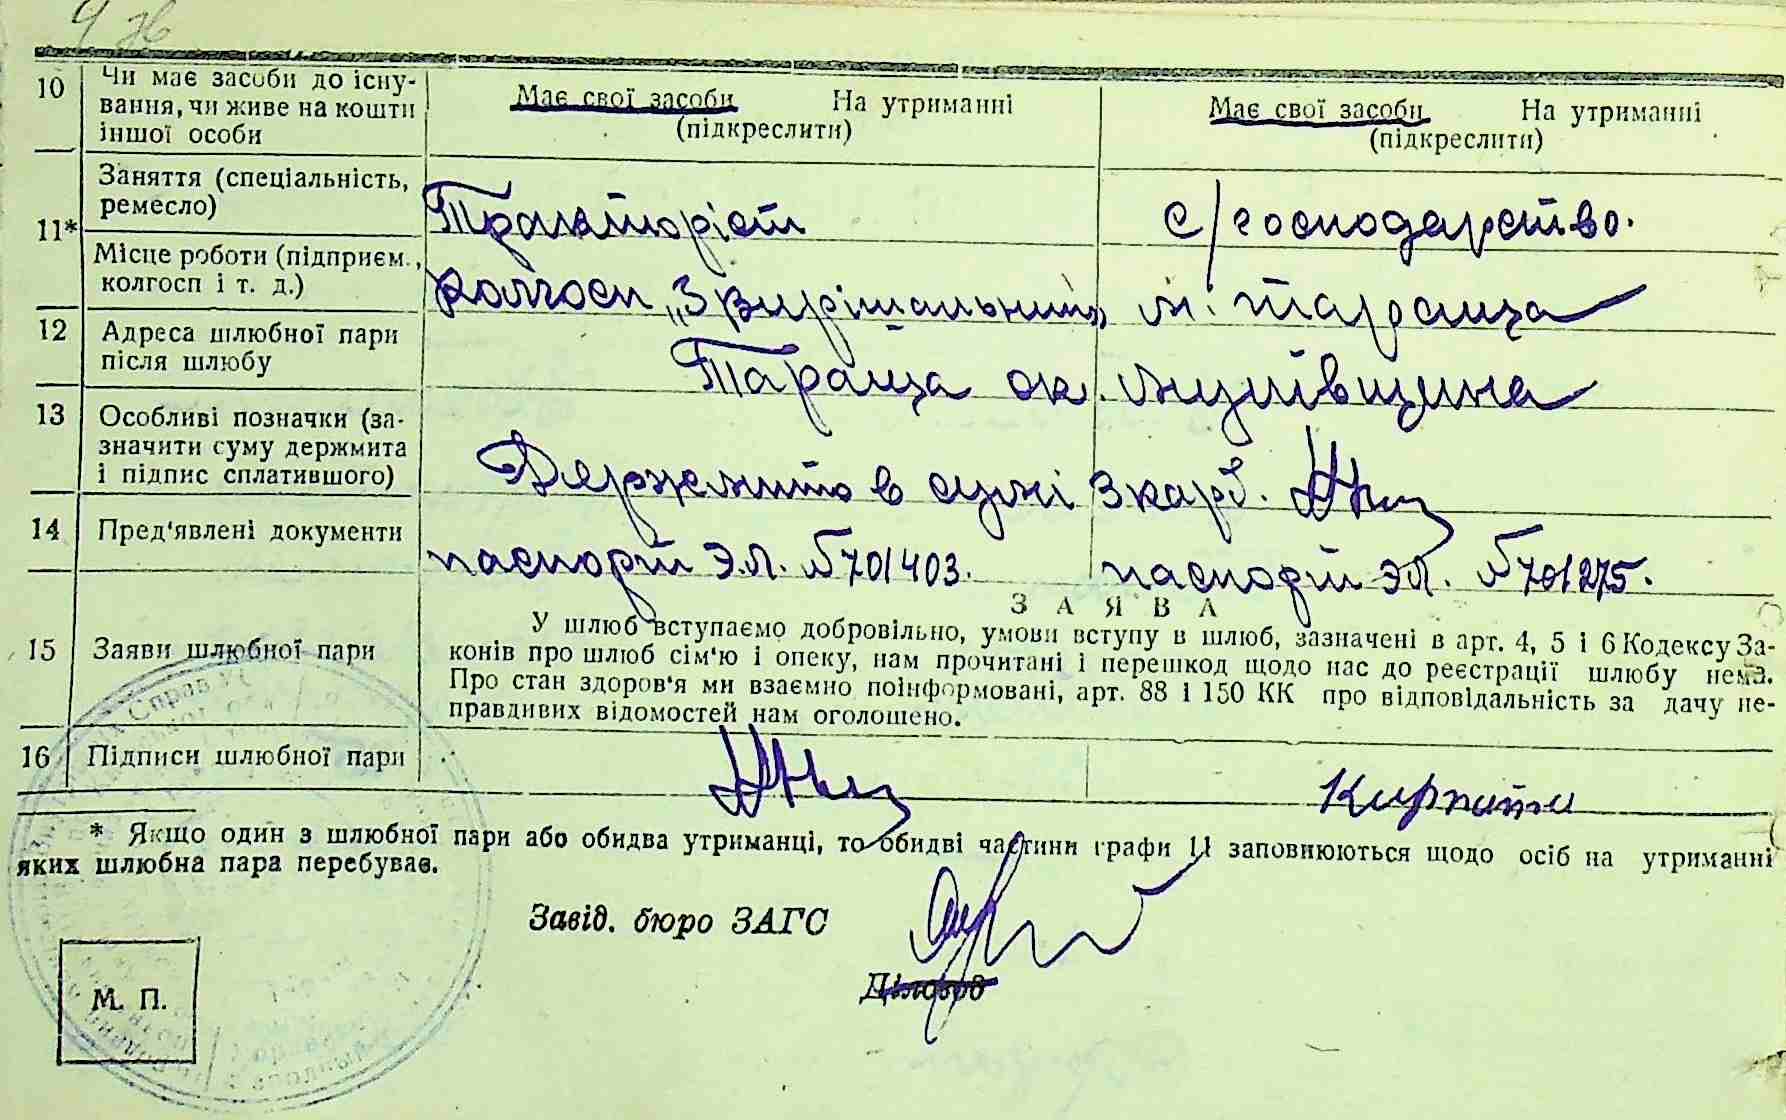 10 Чи має засоби до існування, чи живе на кошти іншої особи
Має свої засоби На утриманні
(підкреслити)
Має свої засоби На утриманні
(підкреслити)
11* Заняття (спеціальність, ремесло)
Тракторіст
с/господарство.
Місце роботи (підприєм., колгосп і т. д.)
Колгосп „3 Вирішальний"
м. Тараща
12 Адреса шлюбної пари після шлюбу
Тараща ок.
13 Особливі позначки (зазначити суму держмита і підпис сплатившого)
Держмито в сумі 3 карб.
14 Пред'явлені документи
паспорт Э.Л. № 701403.
паспорт ЭЛ. № 701275.
15 Заяви шлюбної пари
ЗАЯВА
У шлюб вступаємо добровільно, умови вступу в шлюб, зазначені в арт. 4, 5 і 6 Кодексу За-
конів про шлюб сім'ю і опеку, нам прочитані і перешкод щодо нас до реєстрації шлюбу нема.
Про стан здоров'я ми взаємно поінформовані, арт. 88 і 150 КК про відповідальність за дачу не-
правдивих відомостей нам оголошено.
16 Підписи шлюбної пари
* Якщо один з шлюбної пари або обидва утриманці, то обидві частини графи 11 заповнюються щодо осіб на утриманні
яких шлюбна пара перебуває.
Завід. бюро ЗАГС
Діловод
М. П.